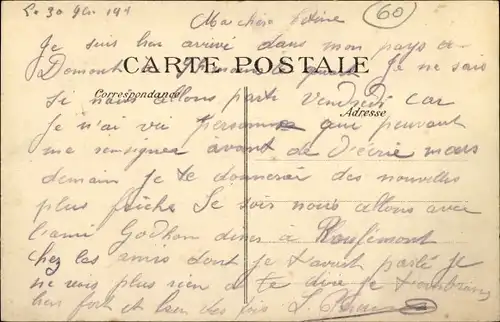 Le 30 9bre 191
60
Ma chère
Je suis bien arrivé dans mon pays a
Domont
CARTE POSTALE
Je ne sais
Correspondance
si nous allons parti Vendredi car
Adresse
Je n'ai vu personne qui peuvant
me renseigner avant de t'écrire mais
demain je te donnerai des nouvelles
plus fraiche Ce soir nous allons avec
l'ami Godhon diner à
chez les amis dont je t'avait parlé Je
ne vois plus rien a te dire je t'embrasse
bien fort et bien des fois L.